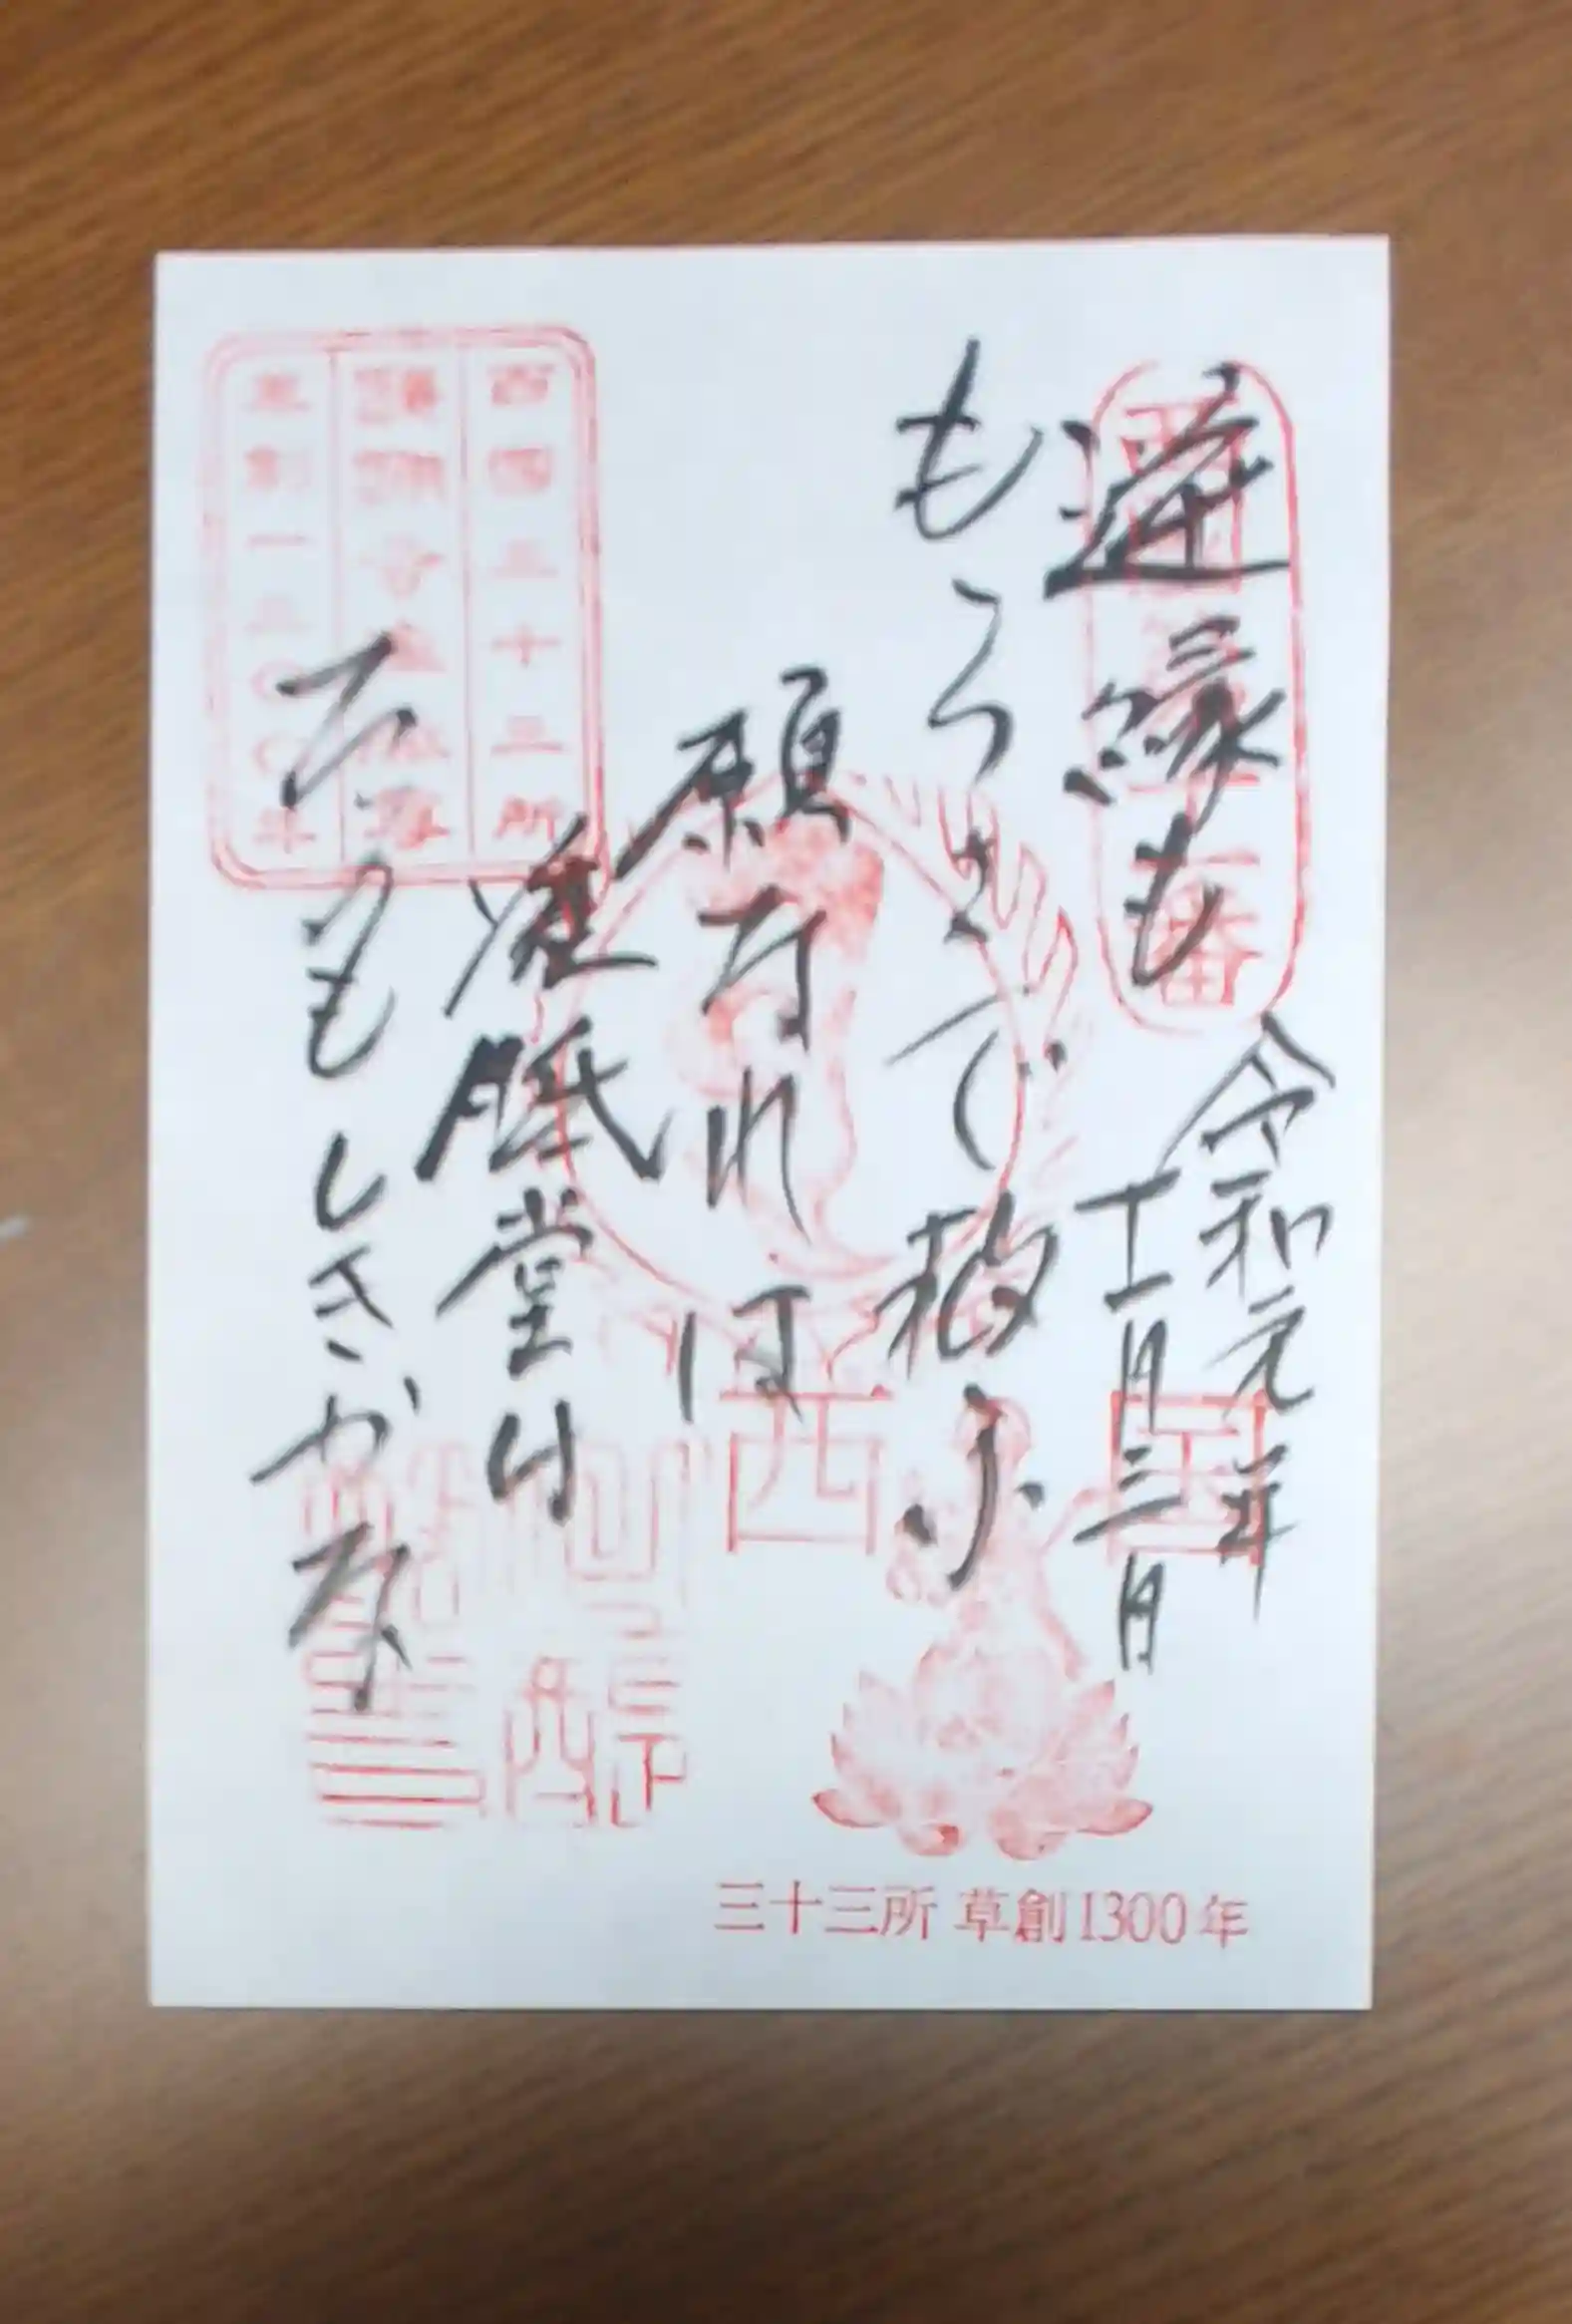 逆縁も
もらさで救ふ
願なれば
准胝堂は
たのもしきかな
令和元年
十一月三日
西国
番
西國三十三所
草創一三〇〇年
西国
三十三所 草創1300年